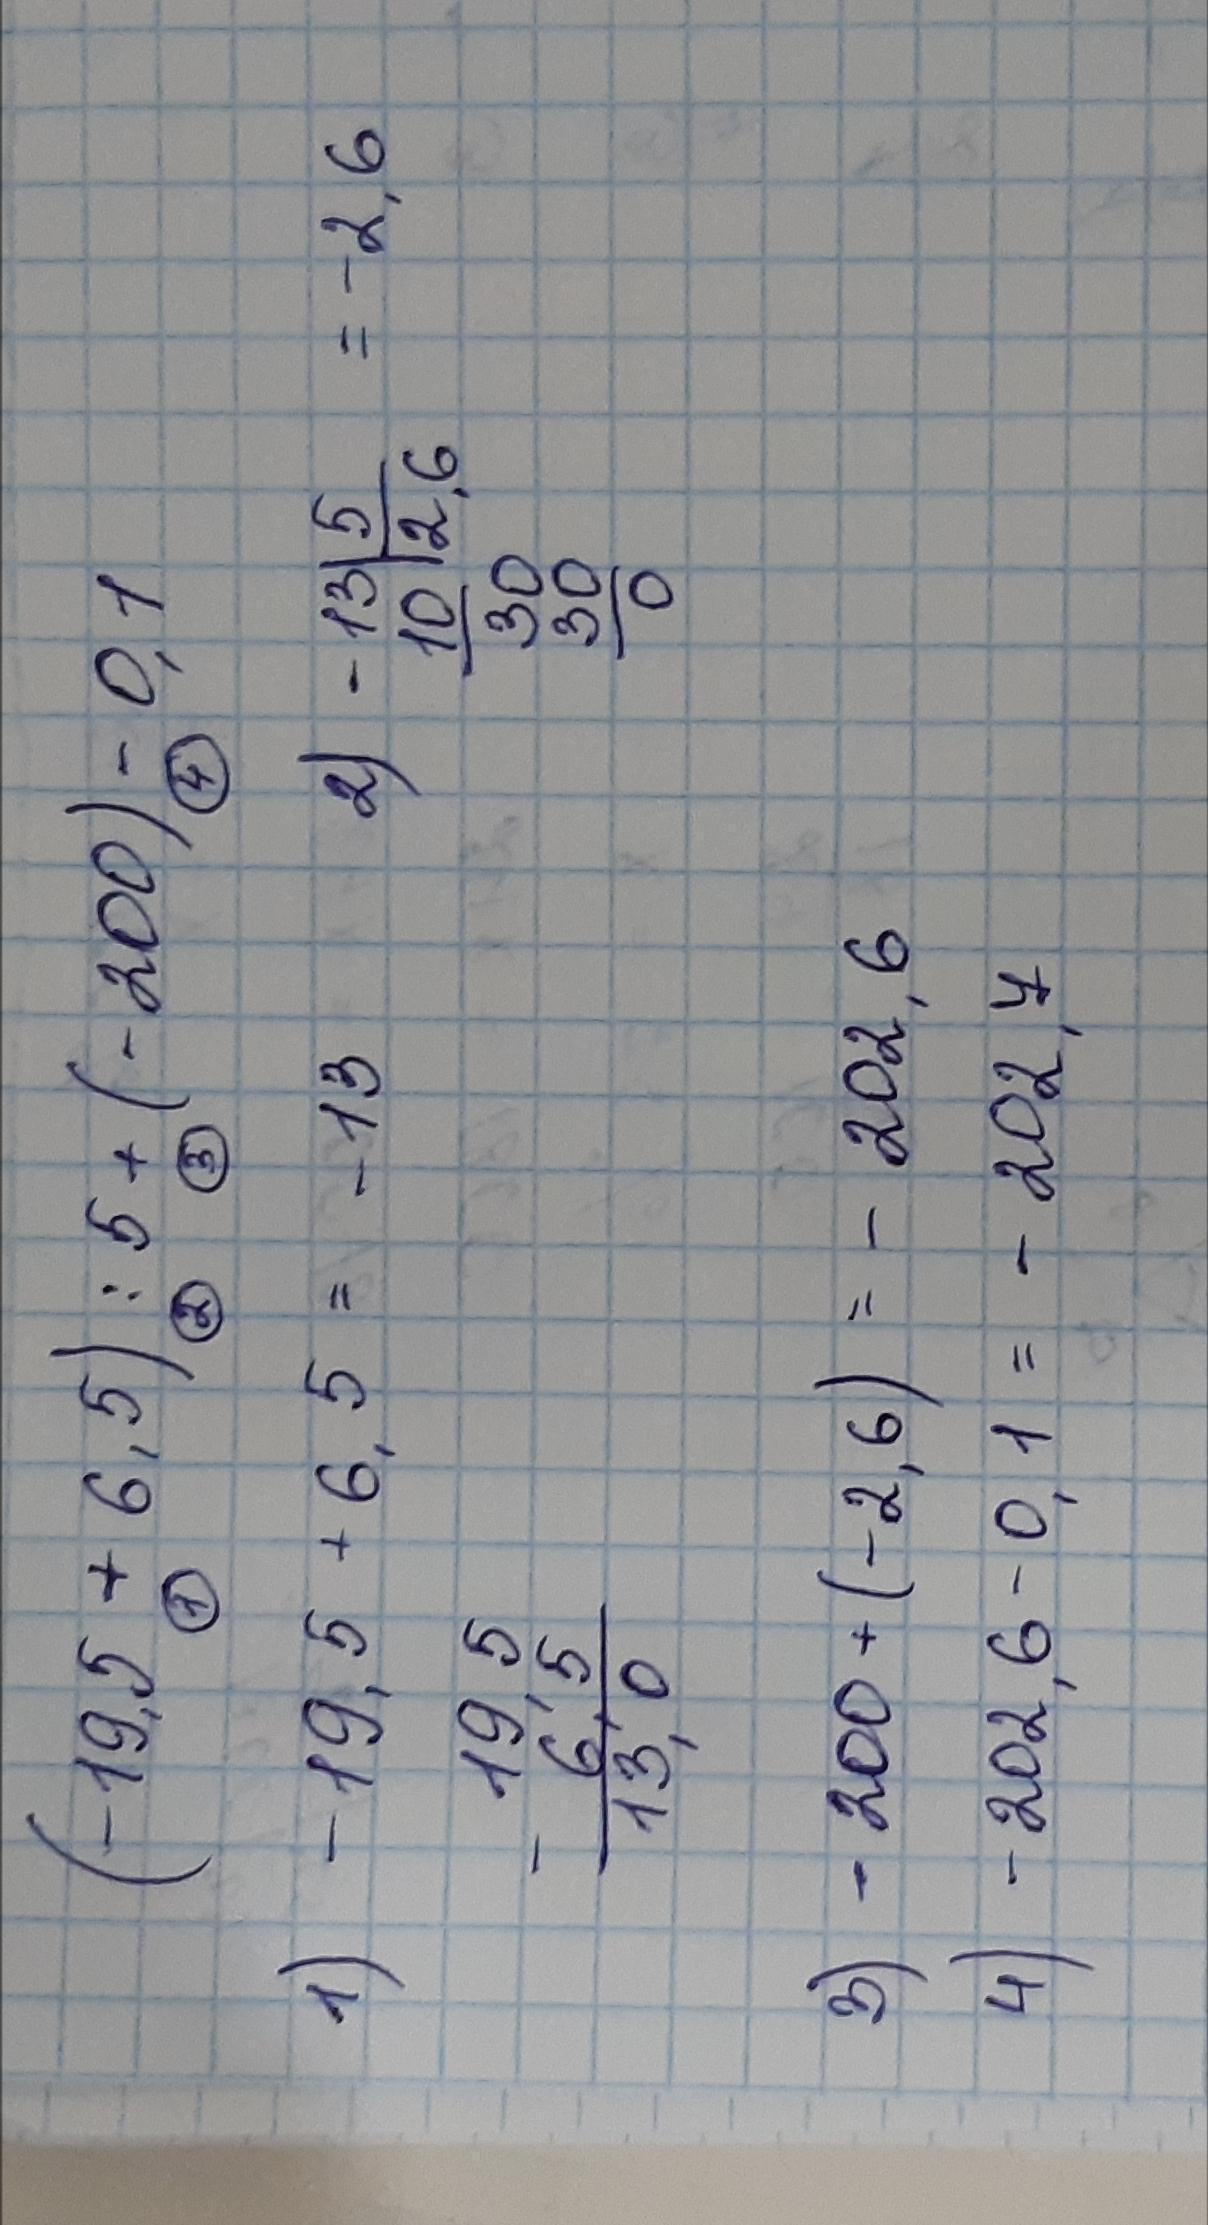 (-19,5 + 6,5) : 5 + (-200) - 0,1
① ② ③ ④
1) -19,5 + 6,5 = -13
- 19,5
6,5
13,0
2) -13 | 5 = -2,6
10 | 2,6
30
30
0
3) -200 + (-2,6) = -202,6
4) -202,6 - 0,1 = -202,7